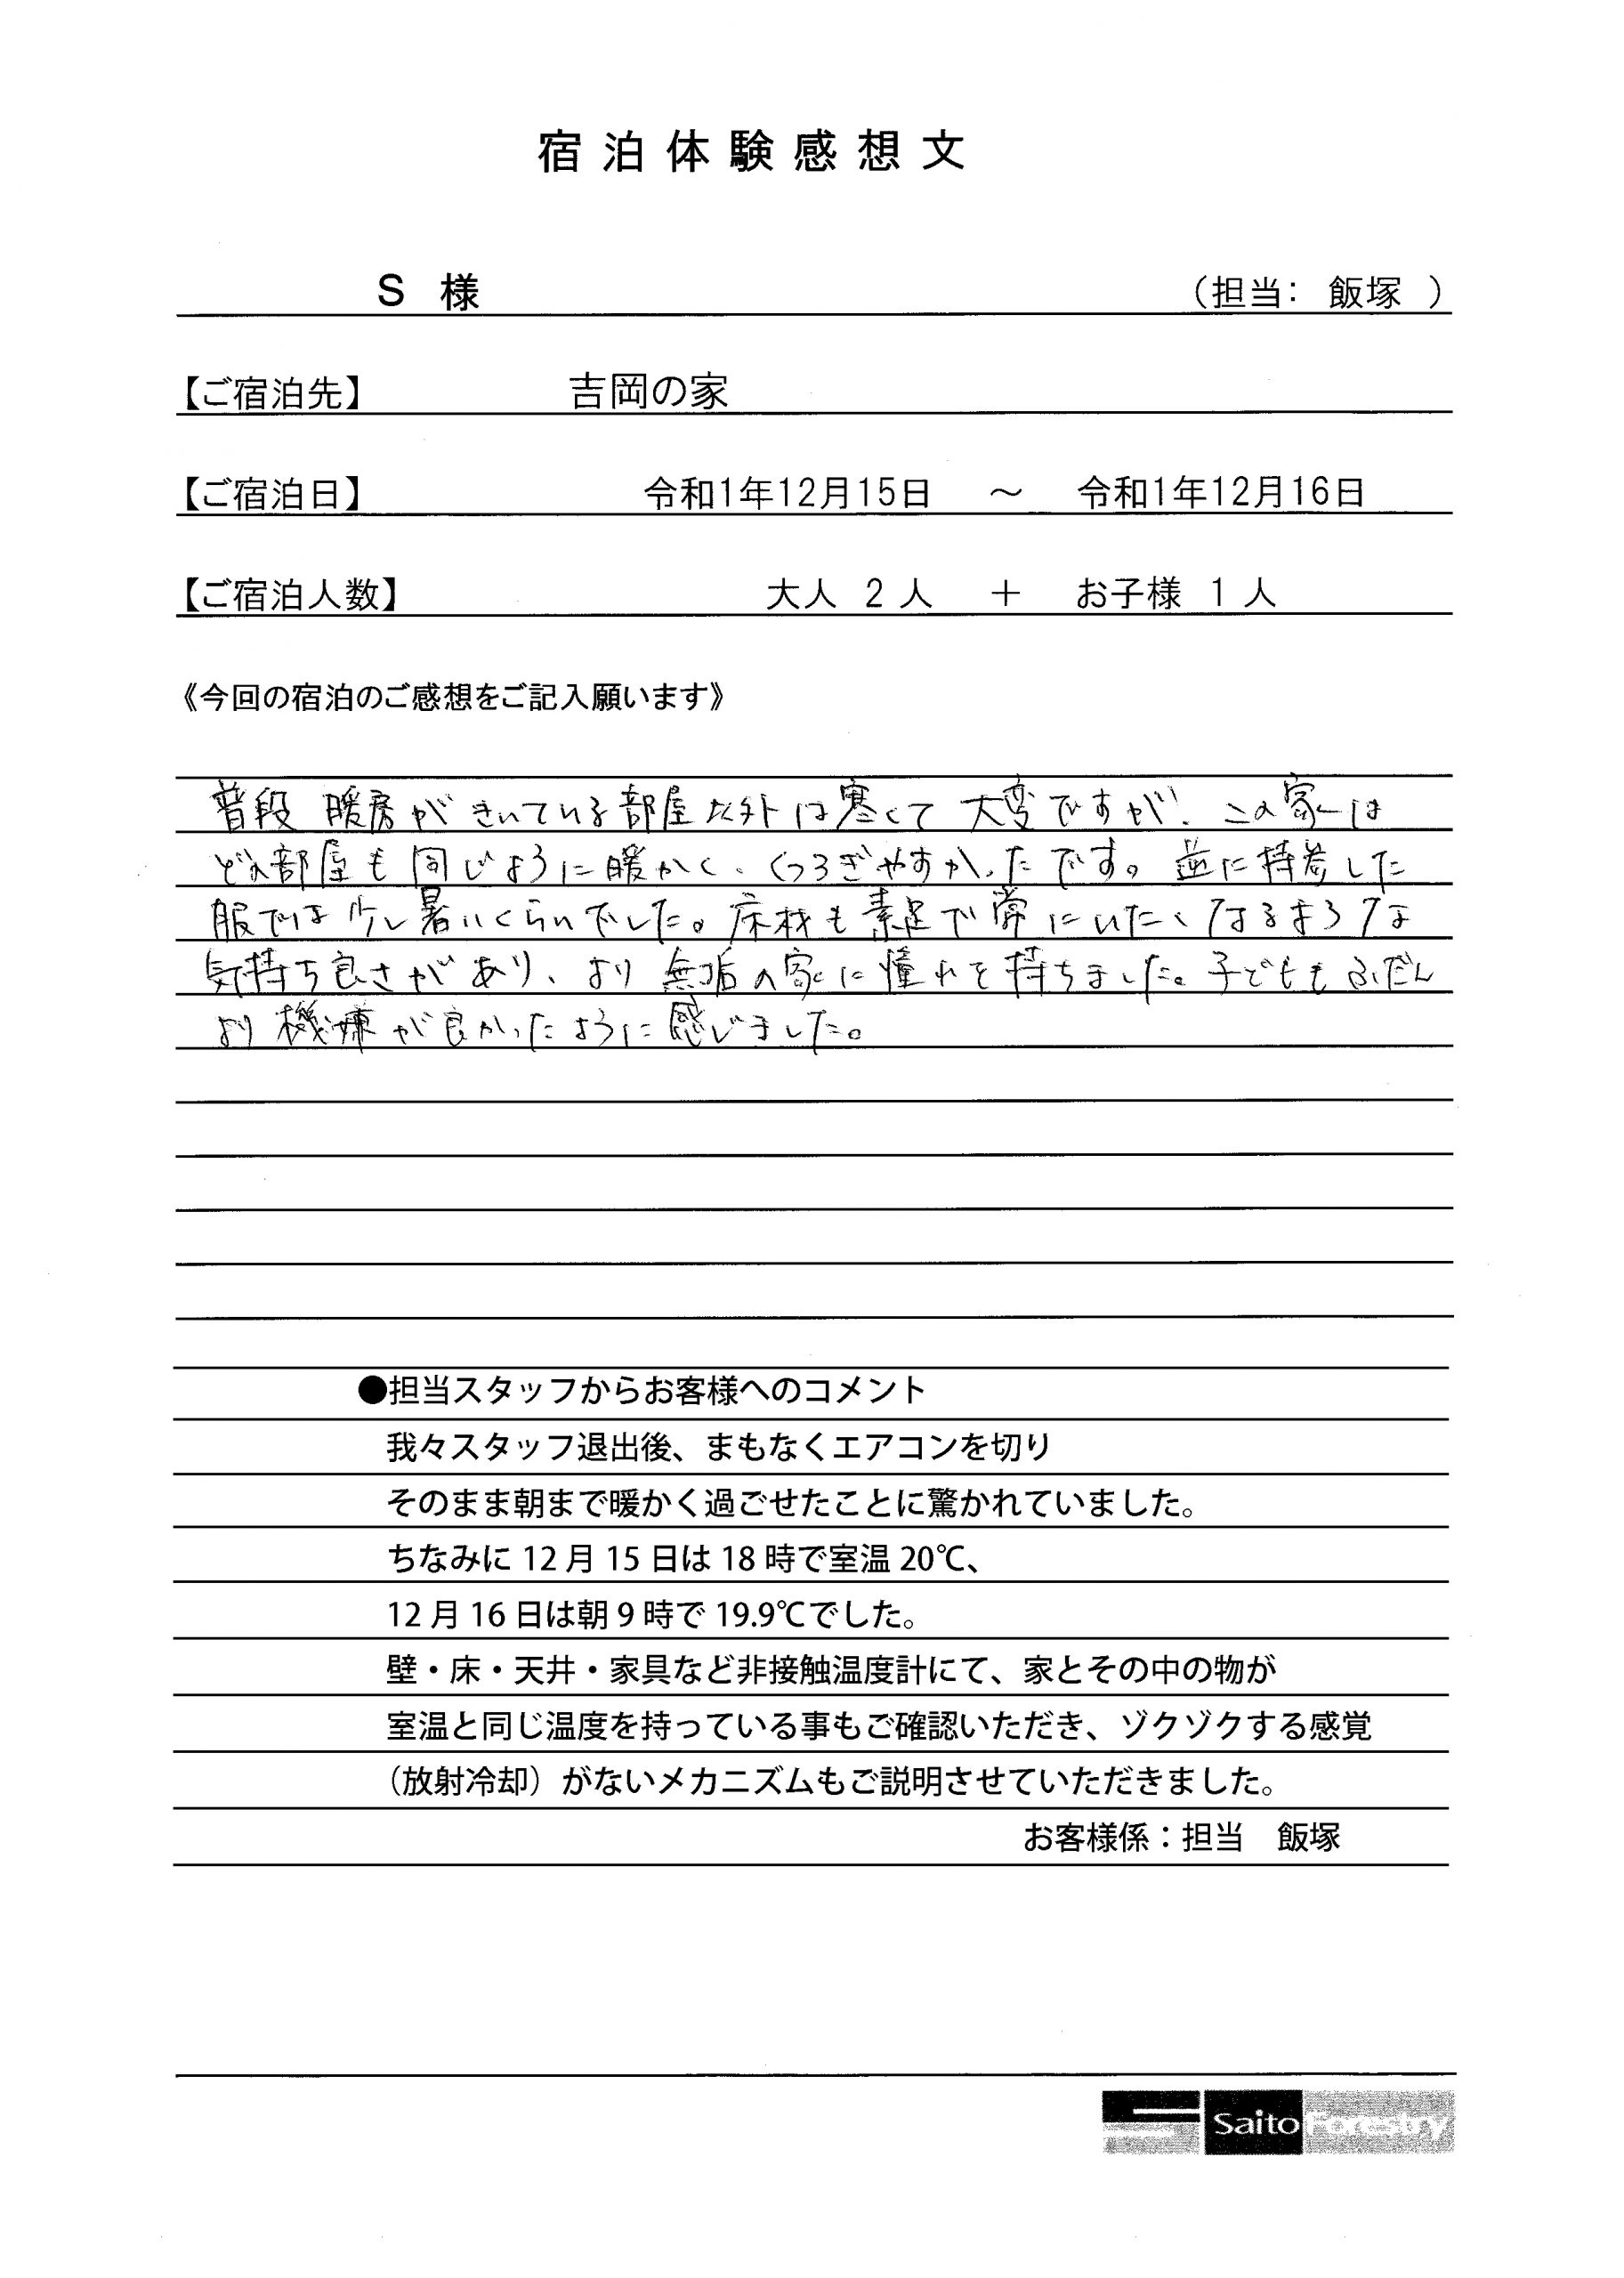 宿泊体験感想文
S 様 （担当: 飯塚 ）
【ご宿泊先】 吉岡の家
【ご宿泊日】 令和1年12月15日 ～ 令和1年12月16日
【ご宿泊人数】 大人 2 人 ＋ お子様 1 人
《今回の宿泊のご感想をご記入願います》
普段 暖房が きいている部屋以外は寒くて 大変ですが、この家は
どの部屋も同じように暖かく、くつろぎやすかったです。逆に持参した
服では少し暑いくらいでした。床材も素足で常にいたくなるような
気持ち良さがあり、より無垢の家に憧れを持ちました。子どももふだん
より機嫌が良かったように感じました。
●担当スタッフからお客様へのコメント
我々スタッフ退出後、まもなくエアコンを切り
そのまま朝まで暖かく過ごせたことに驚かれていました。
ちなみに 12 月 15 日は 18 時で室温 20℃、
12 月 16 日は朝 9 時で 19.9℃でした。
壁・床・天井・家具など非接触温度計にて、家とその中の物が
室温と同じ温度を持っている事もご確認いただき、ゾクゾクする感覚
（放射冷却）がないメカニズムもご説明させていただきました。
お客様係：担当　飯塚
Saito Forestry